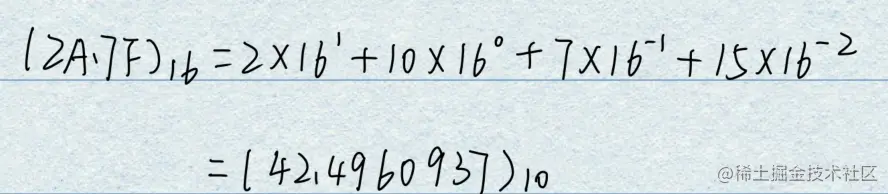 (2A.7F)₁₆ = 2×16¹ + 10×16⁰ + 7×16⁻¹ + 15×16⁻²
= (42.4960937)₁₀
@稀土掘金技术社区